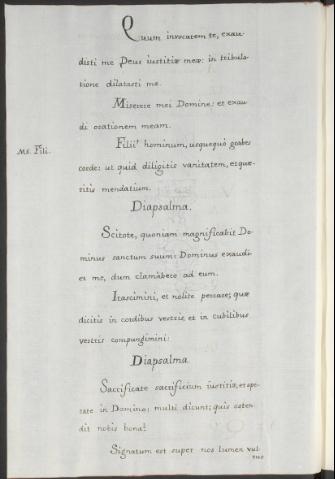 Quum invocarem te, exau-
disti me Deus iustitiæ meæ: in tribula-
tione dilatasti me.
Miserere mei Domine: et exau
di orationem meam.
MS. Fili.
Filii' hominum, usquequò graves
corde: ut quid diligitis vanitatem, et quæ-
ritis mendatium.
Diapsalma.
Scitote, quoniam magnificabit Do-
minus sanctum suum: Dominus exaudi-
et me, dum clamàbero ad eum.
Irascimini, et nolite peccare; quæ
dicitis in cordibus vestris et in cubilibus
vestris compungimini:
Diapsalma
Sacrificate sacrificium iustitiæ, et spe-
rate in Domino; multi dicunt; quis osten-
dit nobis bona?
Signatum est super nos lumen vul-
tus